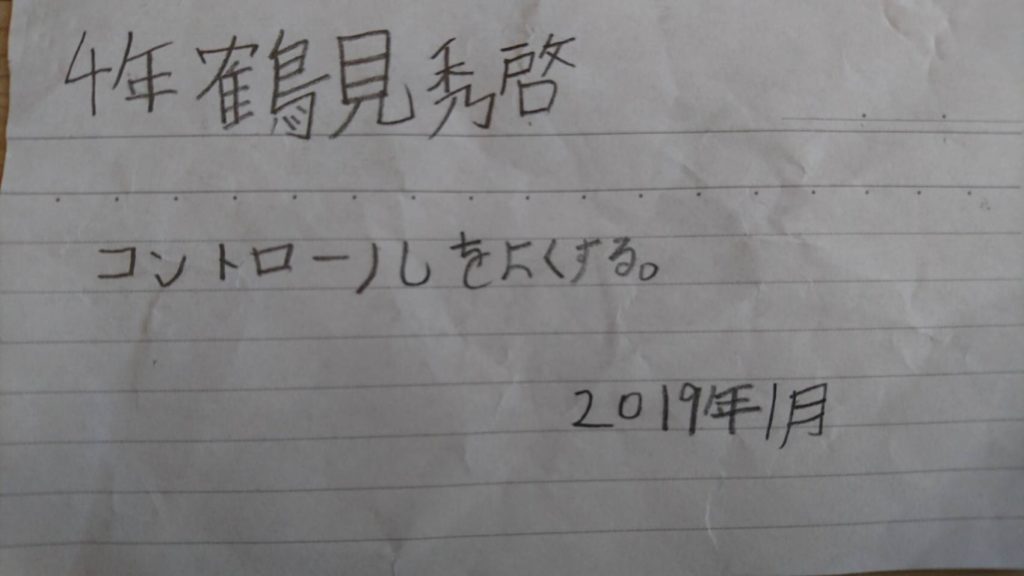 4年鶴見秀啓
コントロールをよくする。
2019年1月